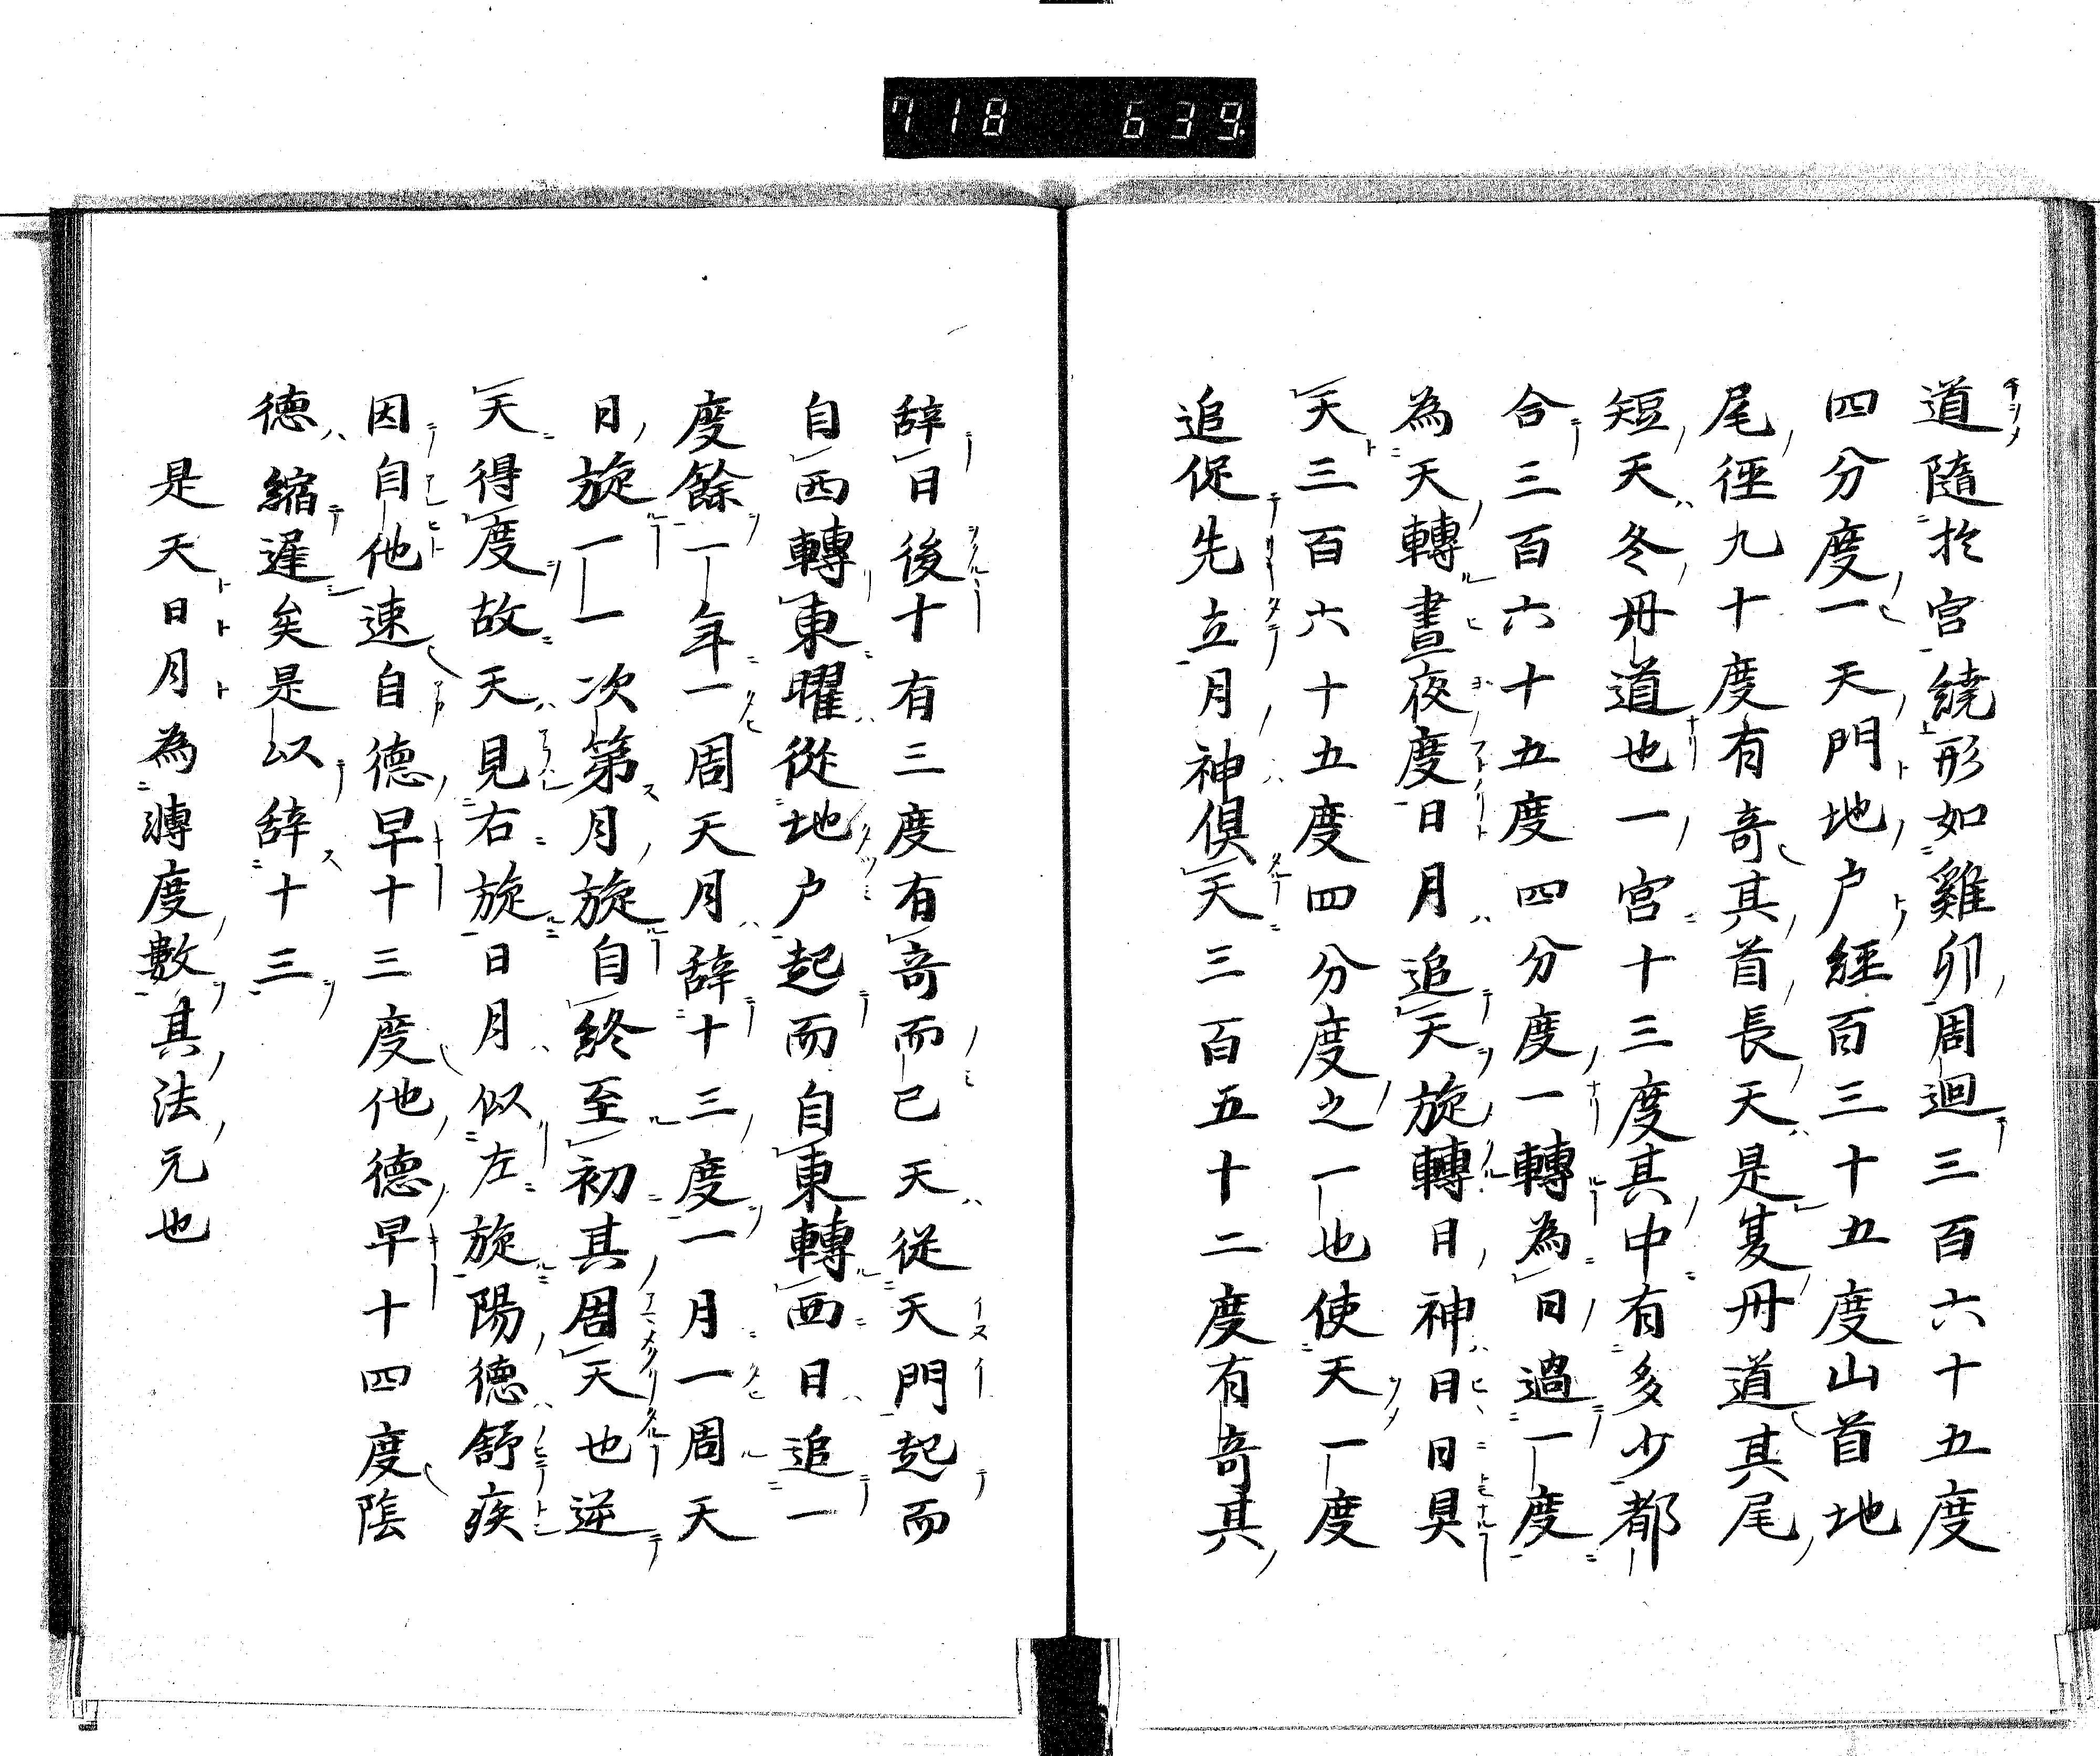 718 639
道隨於宮繞形如雞卵周迴三百六十五度
四分度一天門地户經百三十五度山首地
尾徑九十度有奇其首長天是夏冊道其尾
短天冬冊道也一宮十三度其中有多少都
合三百六十五度四分度一轉為日過一度
為天轉晝夜度日月追天旋轉日神日日具
天三百六十五度四分度之一也使天一度
追促先立月神俱天三百五十二度有奇其
辞日後十有三度有奇而已天従天門起而
自西轉東曜從地户起而自東轉西日追一
度餘一年一周天月辞十三度一月一周天
日旋一一次第月旋自終至初其周天也逆
天得度故天見右旋日月似左旋陽德舒疾
因自他速自德早十三度他德早十四度陰
德縮遲矣是以辞十三
是天日月為轉度數其法元也